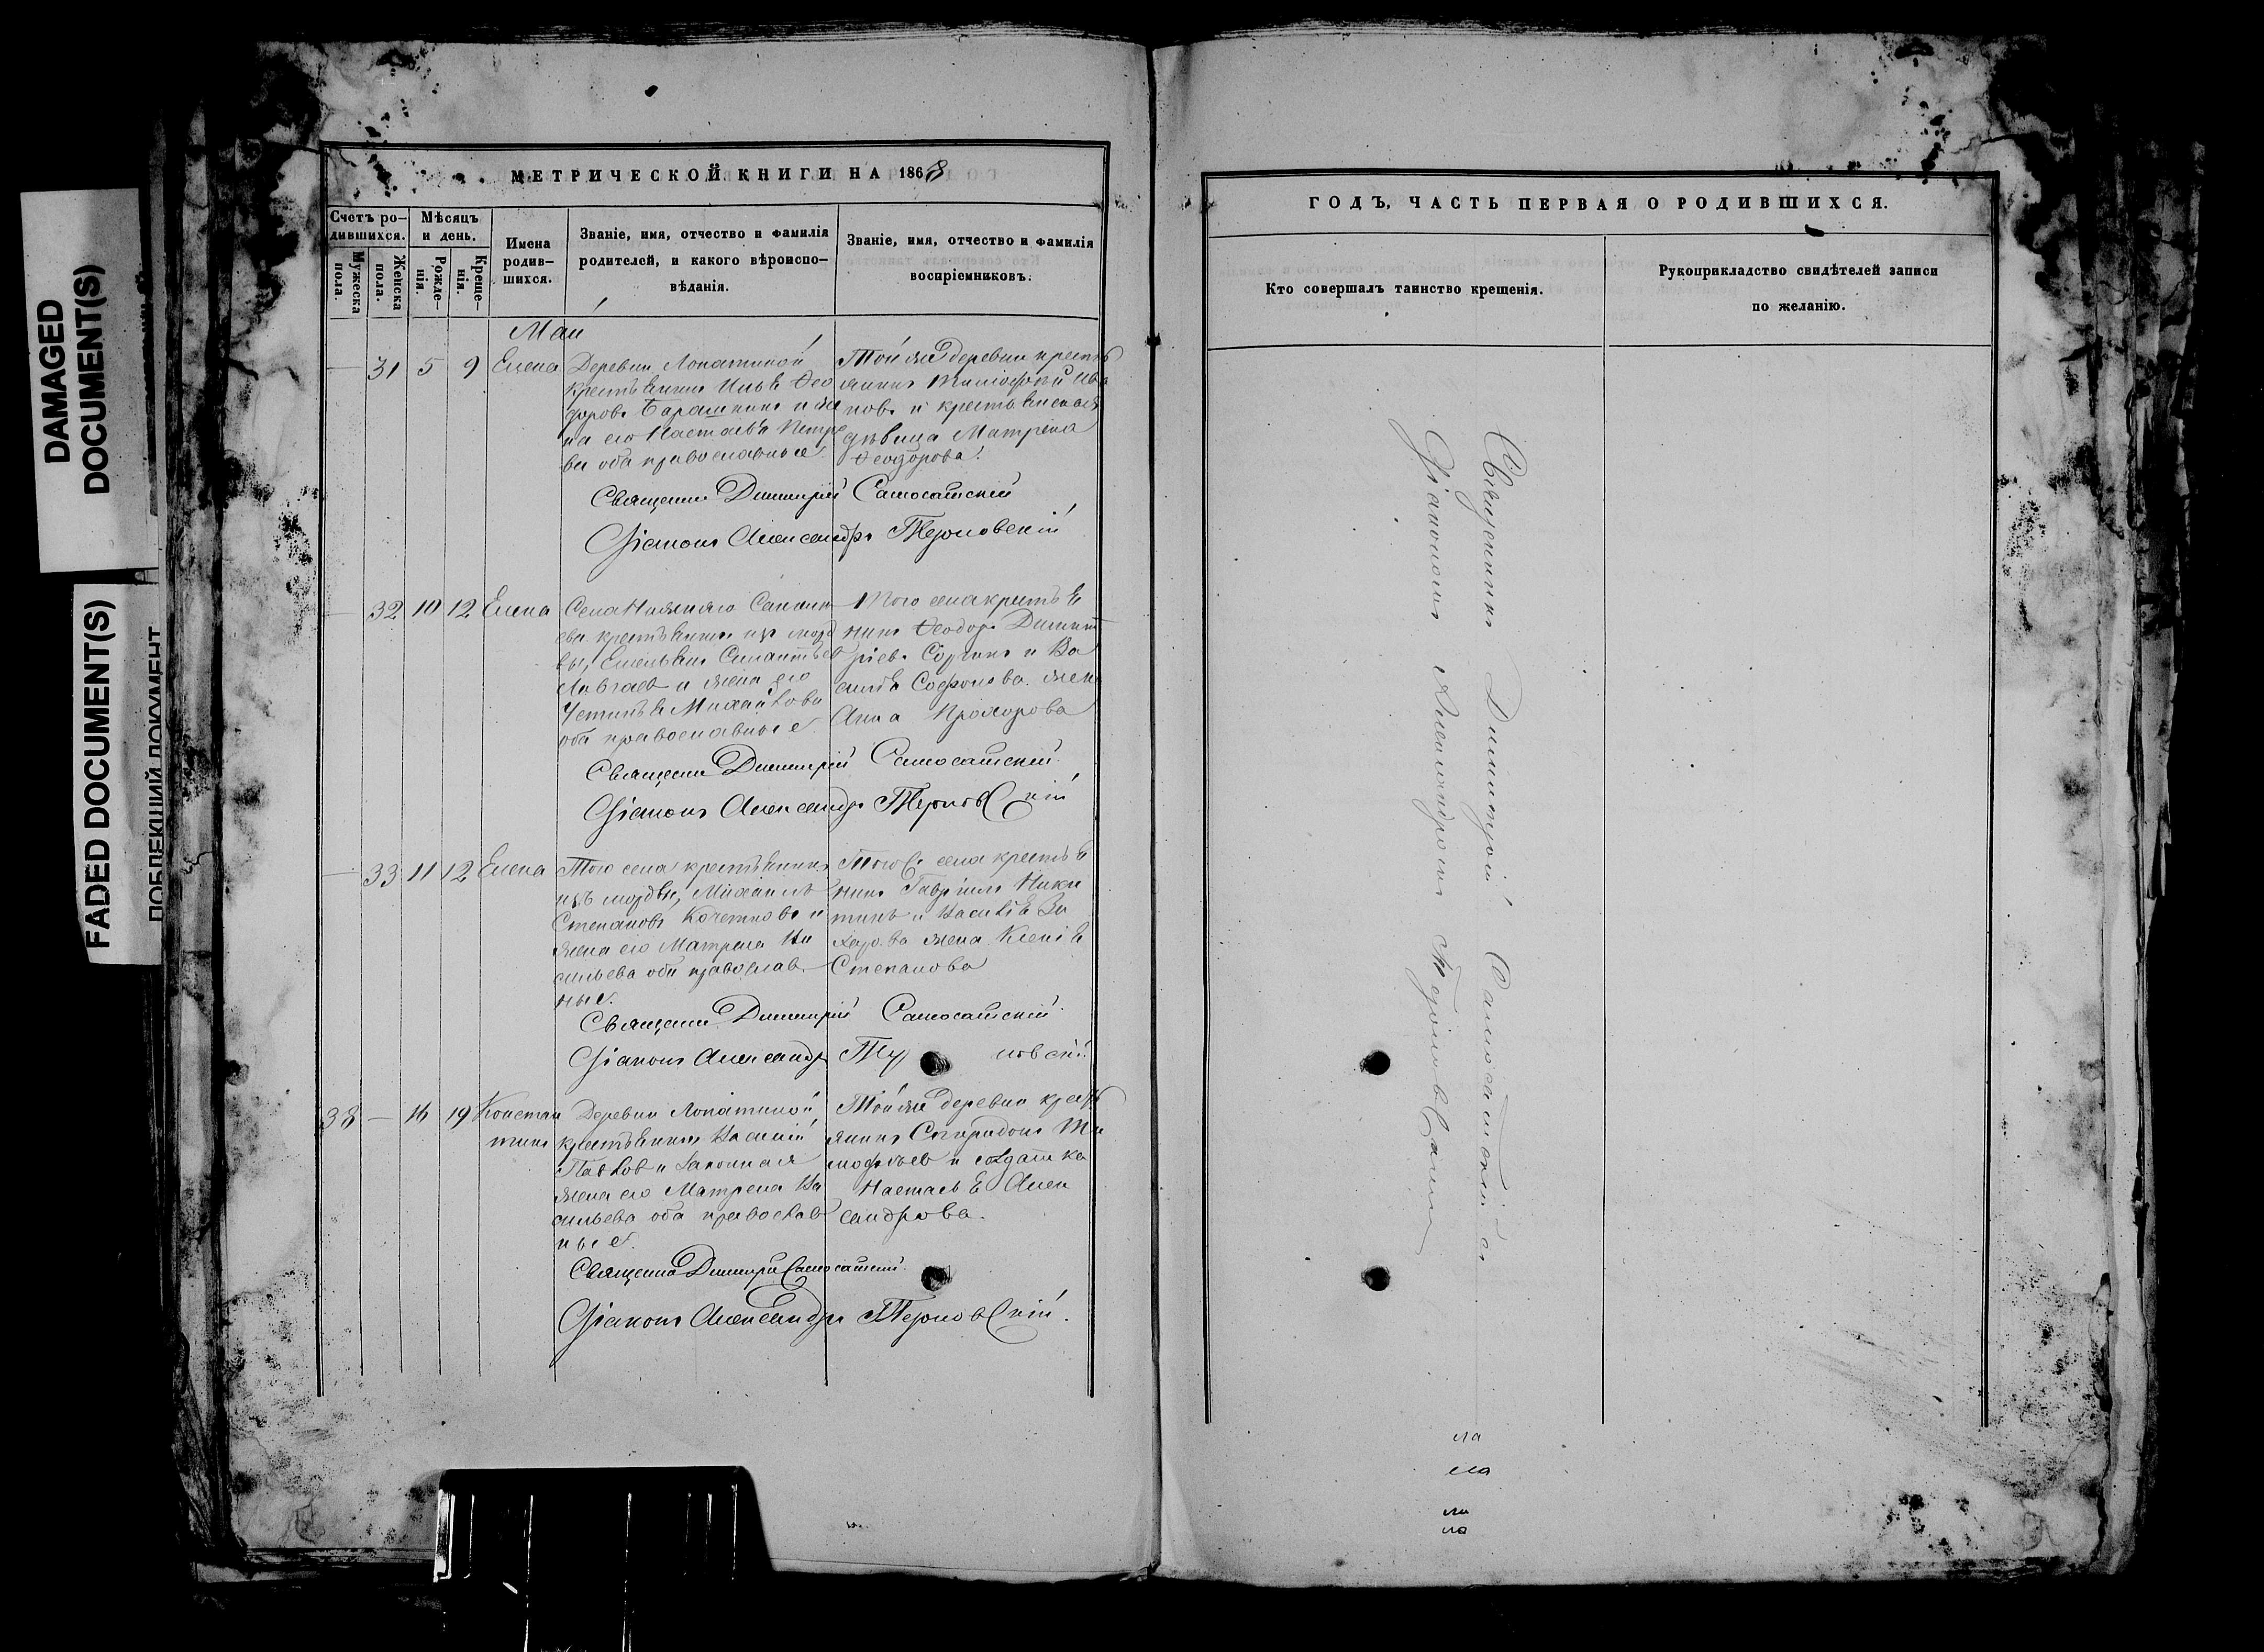 DAMAGED
DOCUMENT(S)
FADED DOCUMENT(S)
МЕТРИЧЕСКОЙ КНИГИ НА 1868
Счетъ ро-
дившихся.
Мѣсяцъ
и день.
Мужеска
пола.
Женска
пола.
Рожде-
нія.
Креще-
нія.
Имена
родив-
шихся.
Званіе, имя, отчество и фамилія
родителей, и какого вѣроиспо-
вѣданія.
Званіе, имя, отчество и фамилія
воспріемниковъ.
Май
31 5 9 Елена
Деревни Лопатиной
крестьянинъ Илья Ѳео
доровъ Барашкинъ и же
на его Настасья Петро
ва оба православные.
Той же деревни кресть
янинъ Тимофей Ива
новъ и крестьянская
дѣвица Матрена
Ѳеодорова.
Священникъ Димитрій Самосатскій
Діаконъ Александръ Терновскій
32 10 12 Елена
Села Нижняго
крестьянинъ изъ морд
вы, Емельянъ
и жена его
Михайлова
оба православные.
Того села крестья
нинъ Ѳеодоръ Димит
ріевъ и Ва
силья Софронова жена
Анна Прохорова
Священникъ Димитрій Самосатскій.
Діаконъ Александръ Терновскій
33 11 12 Елена
Того села крестьянинъ
изъ мордвы, Михаилъ
Степановъ Кочетковъ и
жена его Матрена Ва
сильева оба православ-
ные.
Того села крестья
нинъ Гавріилъ Ники
тинъ и Василья За
харова жена Ксенія
Степанова
Священникъ Димитрій Самосатскій.
Діаконъ Александръ Тер новскій.
38 — 16 19 Констан
тинъ
Деревни Лопатиной
крестьянинъ Василій
Павловъ и законная
жена его Матрена Ва
сильева оба православ
ные.
Той же деревни кресть
янинъ Спиридонъ Ти
мофѣевъ и солдатка
Настасья Алек
сандрова.
Священникъ Димитрій Самосатскій.
Діаконъ Александръ Терновскій.
ГОДЪ, ЧАСТЬ ПЕРВАЯ О РОДИВШИХСЯ.
Кто совершалъ таинство крещенія.
Рукоприкладство свидѣтелей записи
по желанію.
Священникъ Димитрій Самосатскій съ
Діакономъ Александромъ Терновскимъ